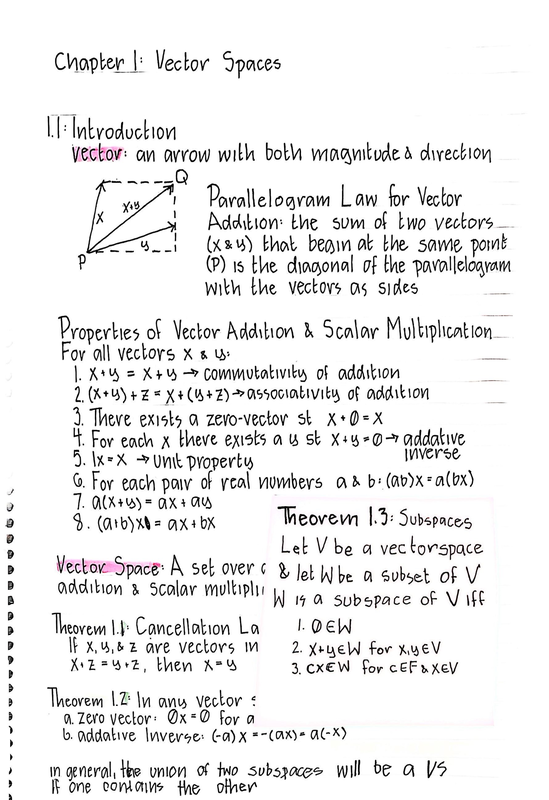 Chapter 1: Vector Spaces
1.1: Introduction
vector: an arrow with both magnitude & direction
Q
x
x+y
y
P
Parallelogram Law for Vector
Addition: the sum of two vectors
(x & y) that begin at the same point
(P) is the diagonal of the parallelogram
with the vectors as sides
Properties of Vector Addition & Scalar Multiplication
For all vectors x & y:
1. x+y = x+y → commutativity of addition
2. (x+y)+z = x+(y+z) → associativity of addition
3. There exists a zero-vector st x+0=x
4. For each x there exists a y st x+y=0 → addative
inverse
5. 1x=x → unit property
6. For each pair of real numbers a & b: (ab)x=a(bx)
7. a(x+y)= ax+ay
8. (a+b)x = ax+bx
Vector Space: A set over
addition & scalar multipli
Theorem 1.1: Cancellation La
If x, y, & z are vectors in
x+z=y+z, then x=y
Theorem 1.2: In any vector
a. zero vector: 0x=0 for a
b. addative inverse: (-a)x=-(ax)=a(-x)
in general, the union of two subspaces will be a VS
If one contains the other
Theorem 1.3: Subspaces
Let V be a vectorspace
& let W be a subset of V
W is a subspace of V iff
1. 0∈W
2. x+y∈W for x,y∈V
3. cx∈W for c∈F & x∈V